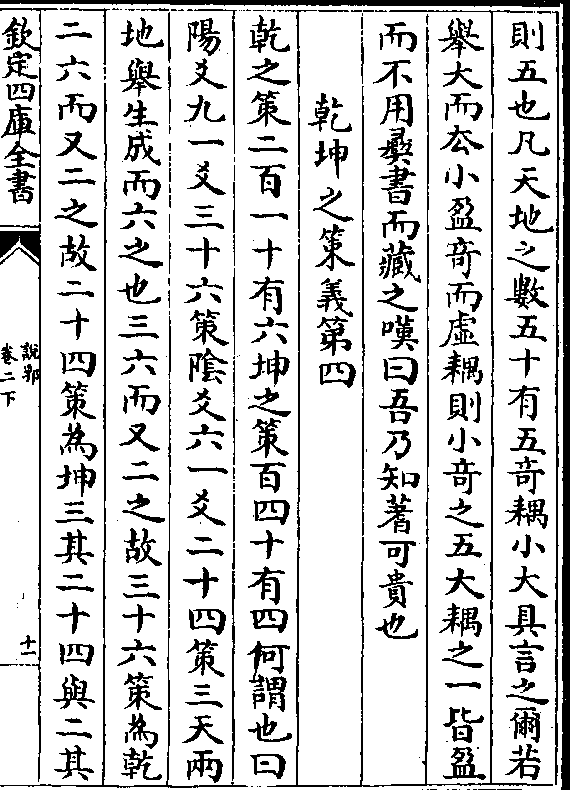 則五也凡天地之數五十有五竒耦小大具言之爾若
舉大而厺小盈竒而虛耦則小竒之五大耦之一皆盈
而不用彛書而藏之嘆曰吾乃知蓍可貴也
乾坤之策義第四
乾之策二百一十有六坤之策百四十有四何謂也曰
陽爻九一爻三十六策陰爻六一爻二十四策三天兩
地舉生成而六之也三六而又二之故三十六策為乾
二六而又二之故二十四策為坤三其二十四與二其
欽定四庫全書
說郛
卷二下
十二